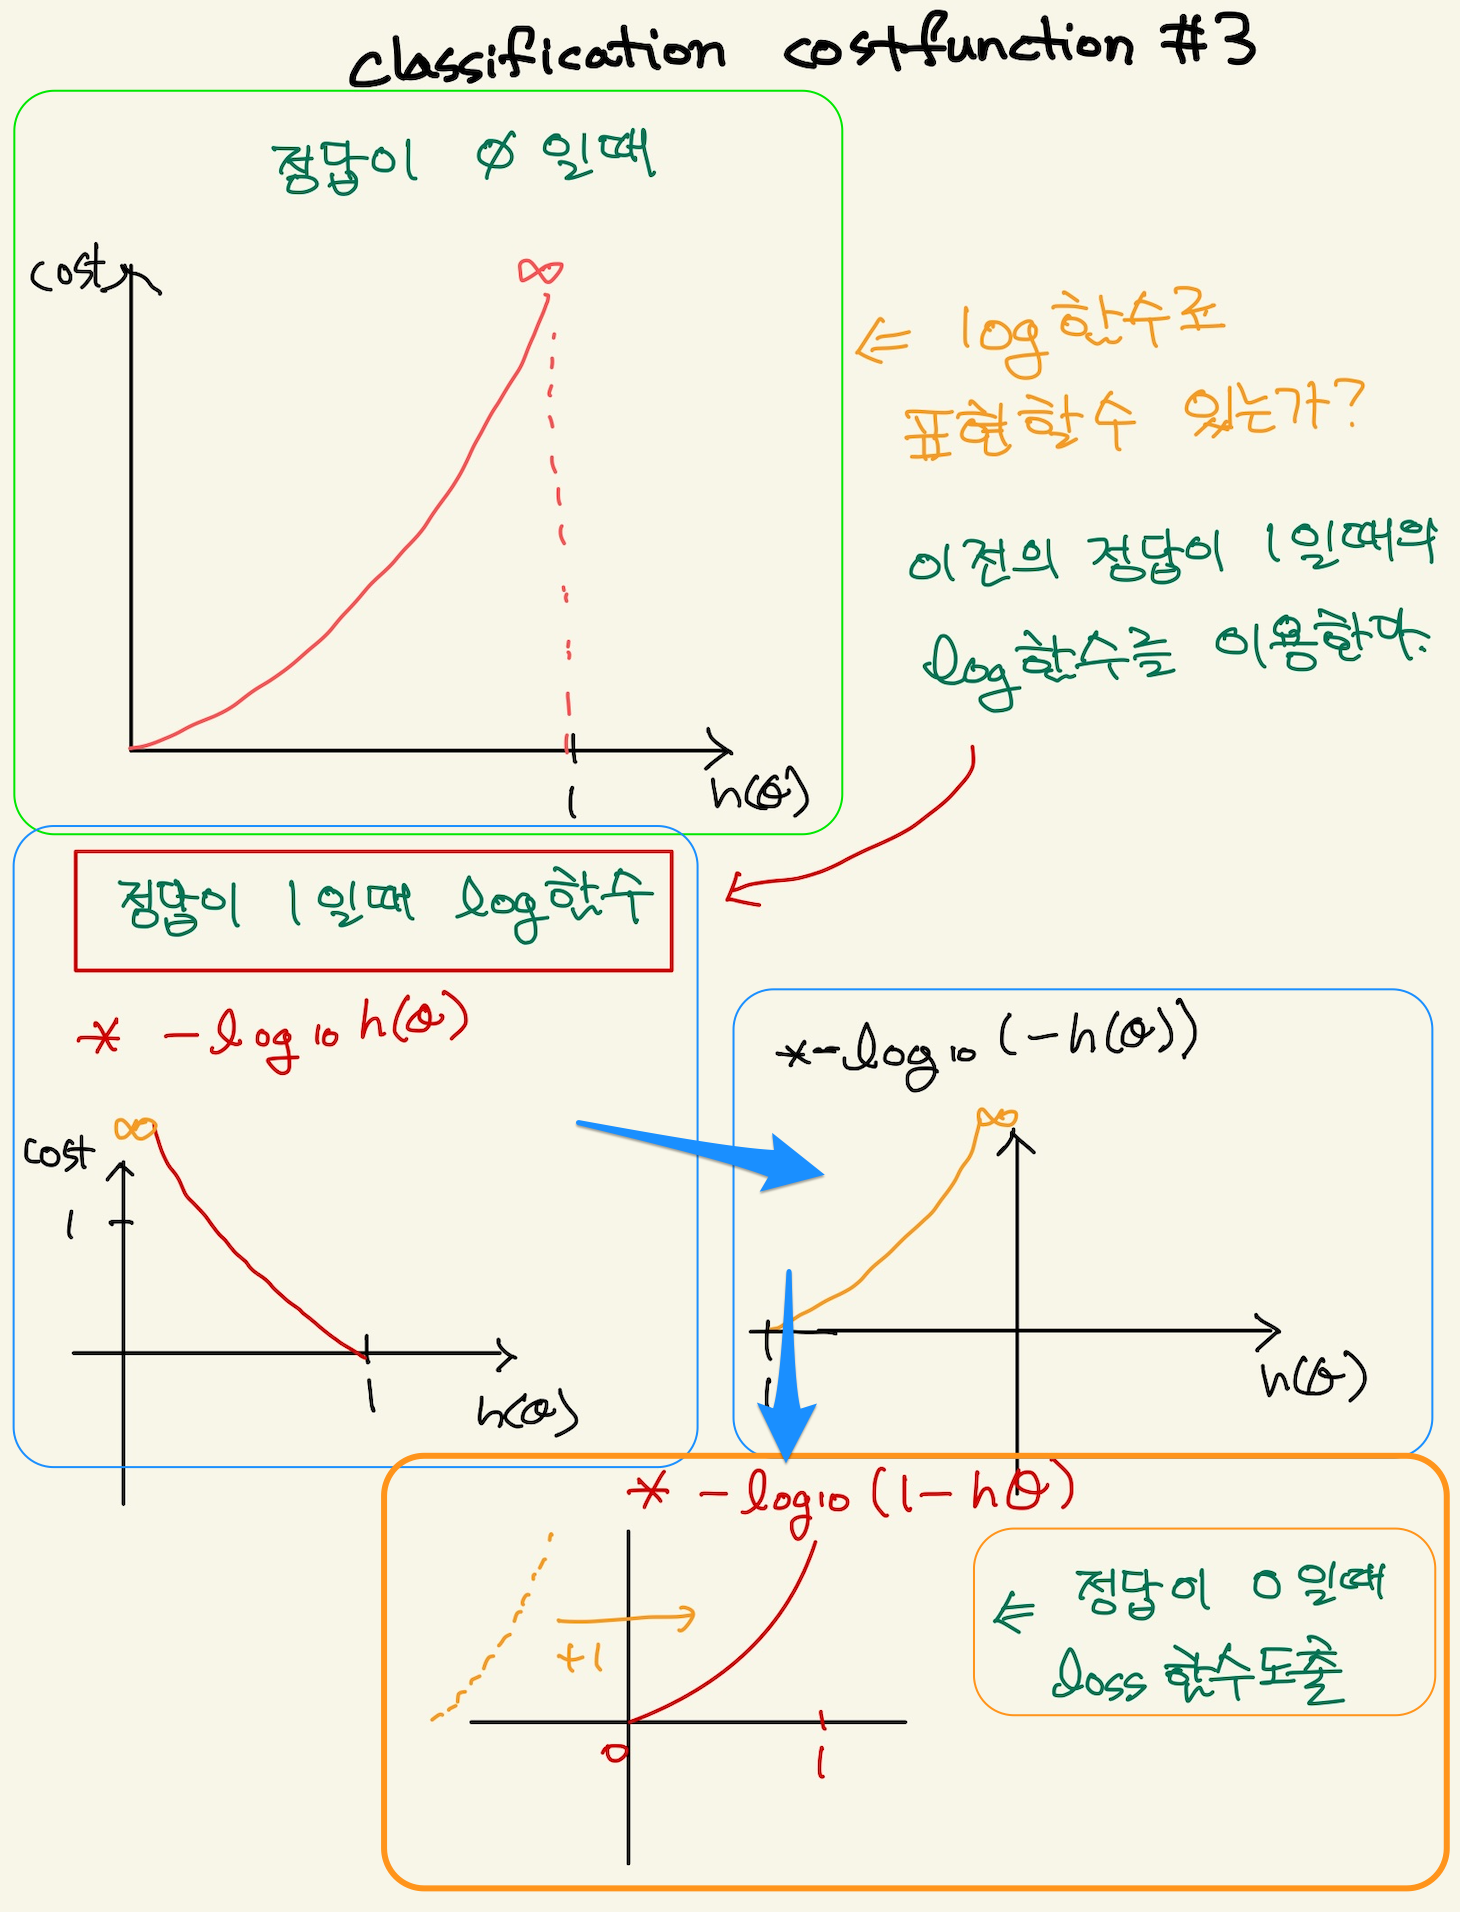 classification costfunction #3
정답이 0 일때
cost
∞
1
h(θ)
⇐ log함수로
표현할수 있는가?
이전의 정답이 1일때의
log함수를 이용한다.
정답이 1일때 log함수
* -log10 h(θ)
∞
cost
1
1
h(θ)
*-log10 (-h(θ))
∞
1
h(θ)
* -log10 (1-hθ)
+1
0
1
⇐ 정답이 0일때
loss 함수도출